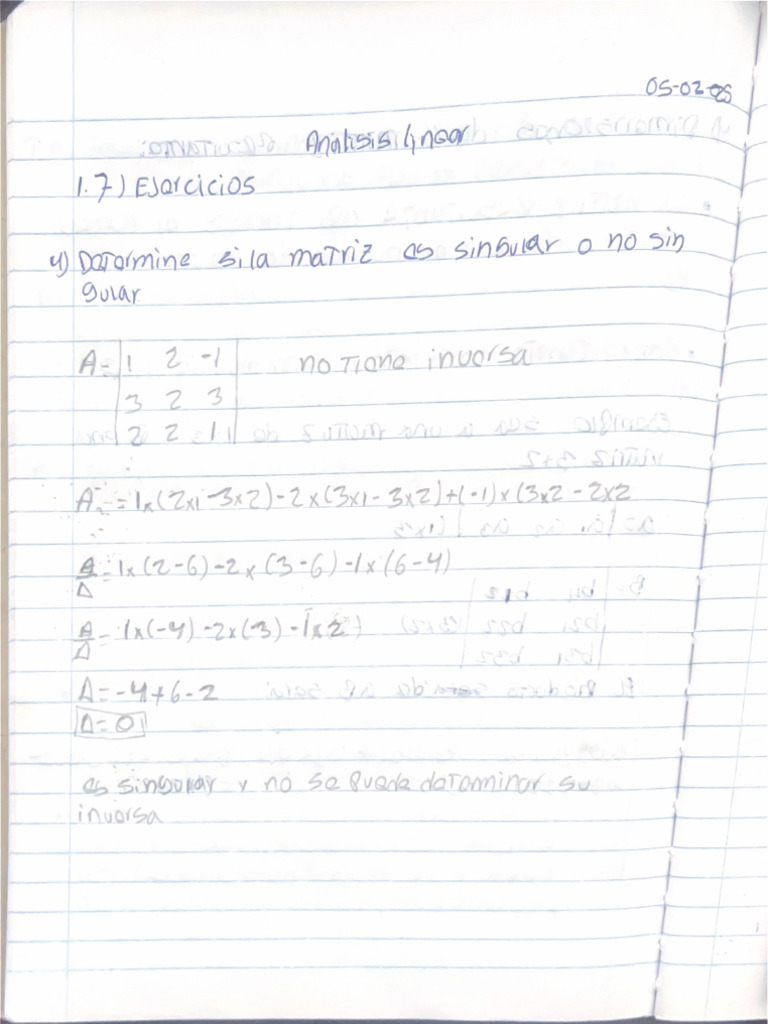 05-02-25
Analisis linear
1.7) Ejercicios
4) Determine si la matriz es singular o no sin
gular
A= 1 2 -1 no tiene inversa
3 2 3
2 2 1
A = 1x(2x1-3x2)-2x(3x1-3x2)+(-1)x(3x2-2x2
A/Δ = 1x(2-6)-2x(3-6)-1x(6-4)
A/Δ = 1x(-4)-2x(-3)-1x2
Δ=-4+6-2
Δ=0
es singular y no se puede determinar su
inversa